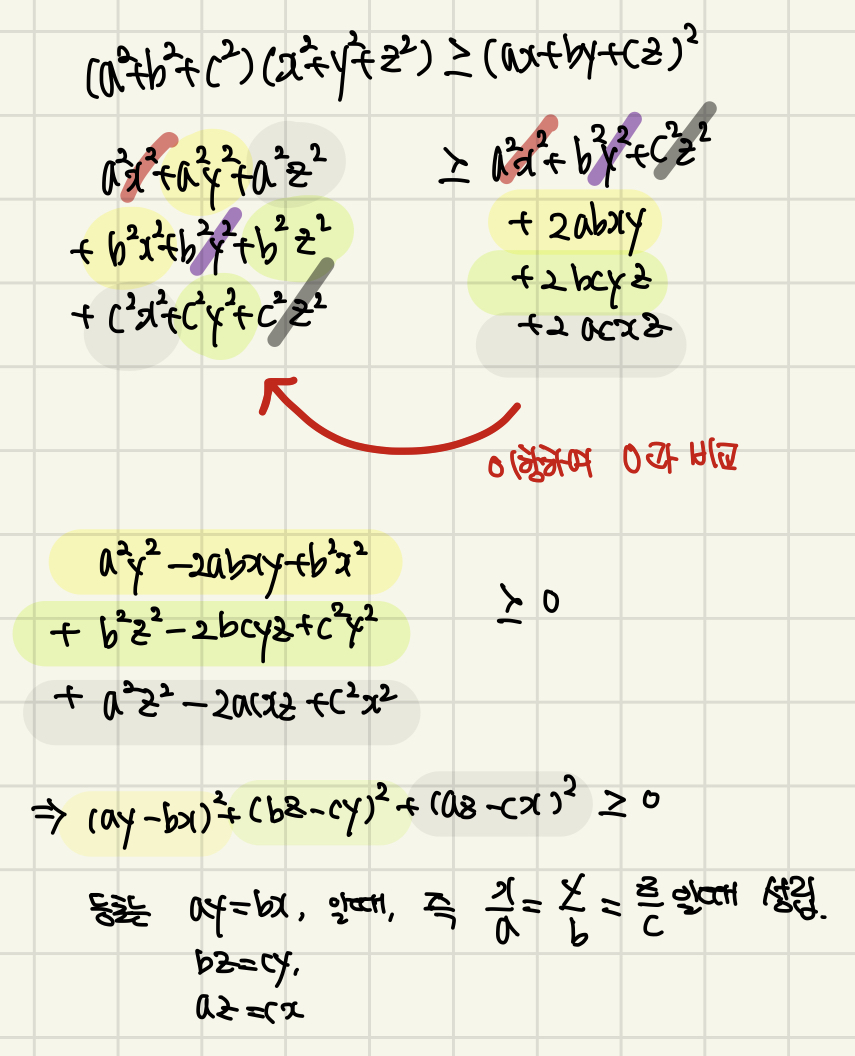 (a²+b²+c²)(x²+y²+z²) ≥ (ax+by+cz)²
a²x²+a²y²+a²z² ≥ a²x²+b²y²+c²z²
+ b²x²+b²y²+b²z² + 2abxy
+ c²x²+c²y²+c²z² + 2bcyz
+2acxz
이항하여 0과 비교
a²y² -2abxy+b²x²
+ b²z² - 2bcyz+c²y² ≥ 0
+ a²z² - 2acxz +c²x²
⇒ (ay-bx)²+(bz-cy)²+(az-cx)² ≥ 0
등호는 ay=bx, 일때, 즉 x/a = y/b = z/c 일때 성립.
bz=cy,
az=cx